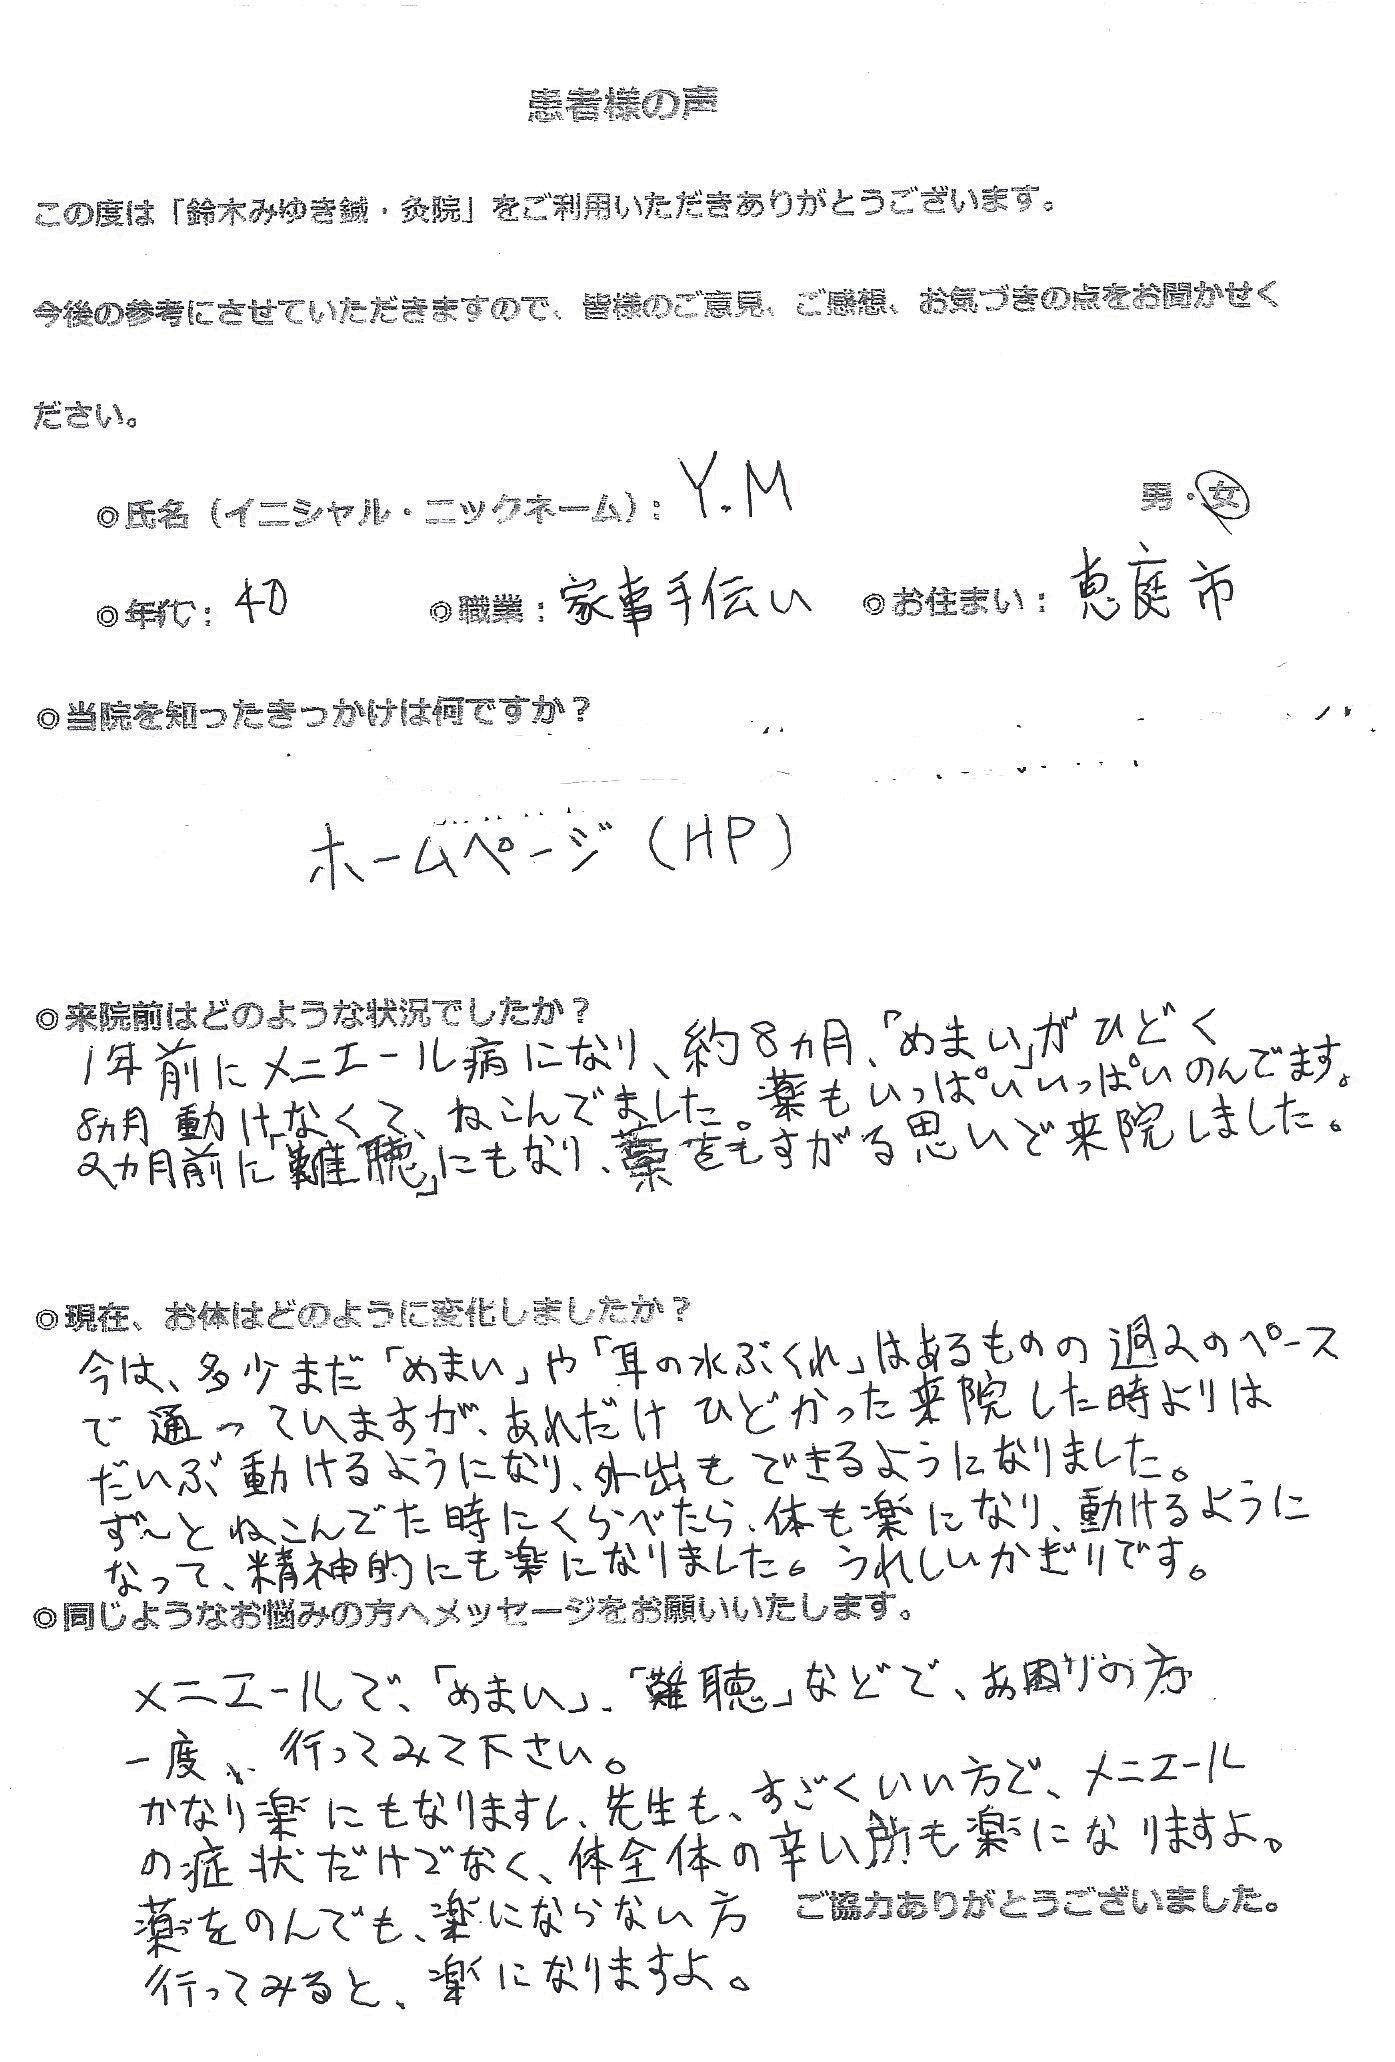 患者様の声
この度は「鈴木みゆき鍼・灸院」をご利用いただきありがとうございます。
今後の参考にさせていただきますので、皆様のご意見、ご感想、お気づきの点をお聞かせく
ださい。
◎氏名（イニシャル・ニックネーム）：Y.M 男・女
◎年代：40 ◎職業：家事手伝い ◎お住まい：恵庭市
◎当院を知ったきっかけは何ですか？
ホームページ（HP）
◎来院前はどのような状況でしたか？
1年前にメニエール病になり、約8ヵ月、「めまい」がひどく
8ヵ月動けなくて、ねこんでました。薬もいっぱいいっぱいのんでます。
2ヵ月前に「難聴」にもなり、藁をもすがる思いで来院しました。
◎現在、お体はどのように変化しましたか？
今は、多少まだ「めまい」や「耳の水ぶくれ」はあるものの週2のペース
で通っていますが、あれだけひどかった来院した時よりは
だいぶ動けるようになり、外出もできるようになりました。
ず～とねこんでた時にくらべたら、体も楽になり、動けるように
なって、精神的にも楽になりました。うれしいかぎりです。
◎同じようなお悩みの方へメッセージをお願いいたします。
メニエールで、「めまい」、「難聴」などで、お困りの方
一度、行ってみて下さい。
かなり楽にもなりますし、先生も、すごくいい方で、メニエール
の症状だけでなく、体全体の辛い所も楽になりますよ。
薬をのんでも、楽にならない方
ご協力ありがとうございました。
行ってみると、楽になりますよ。